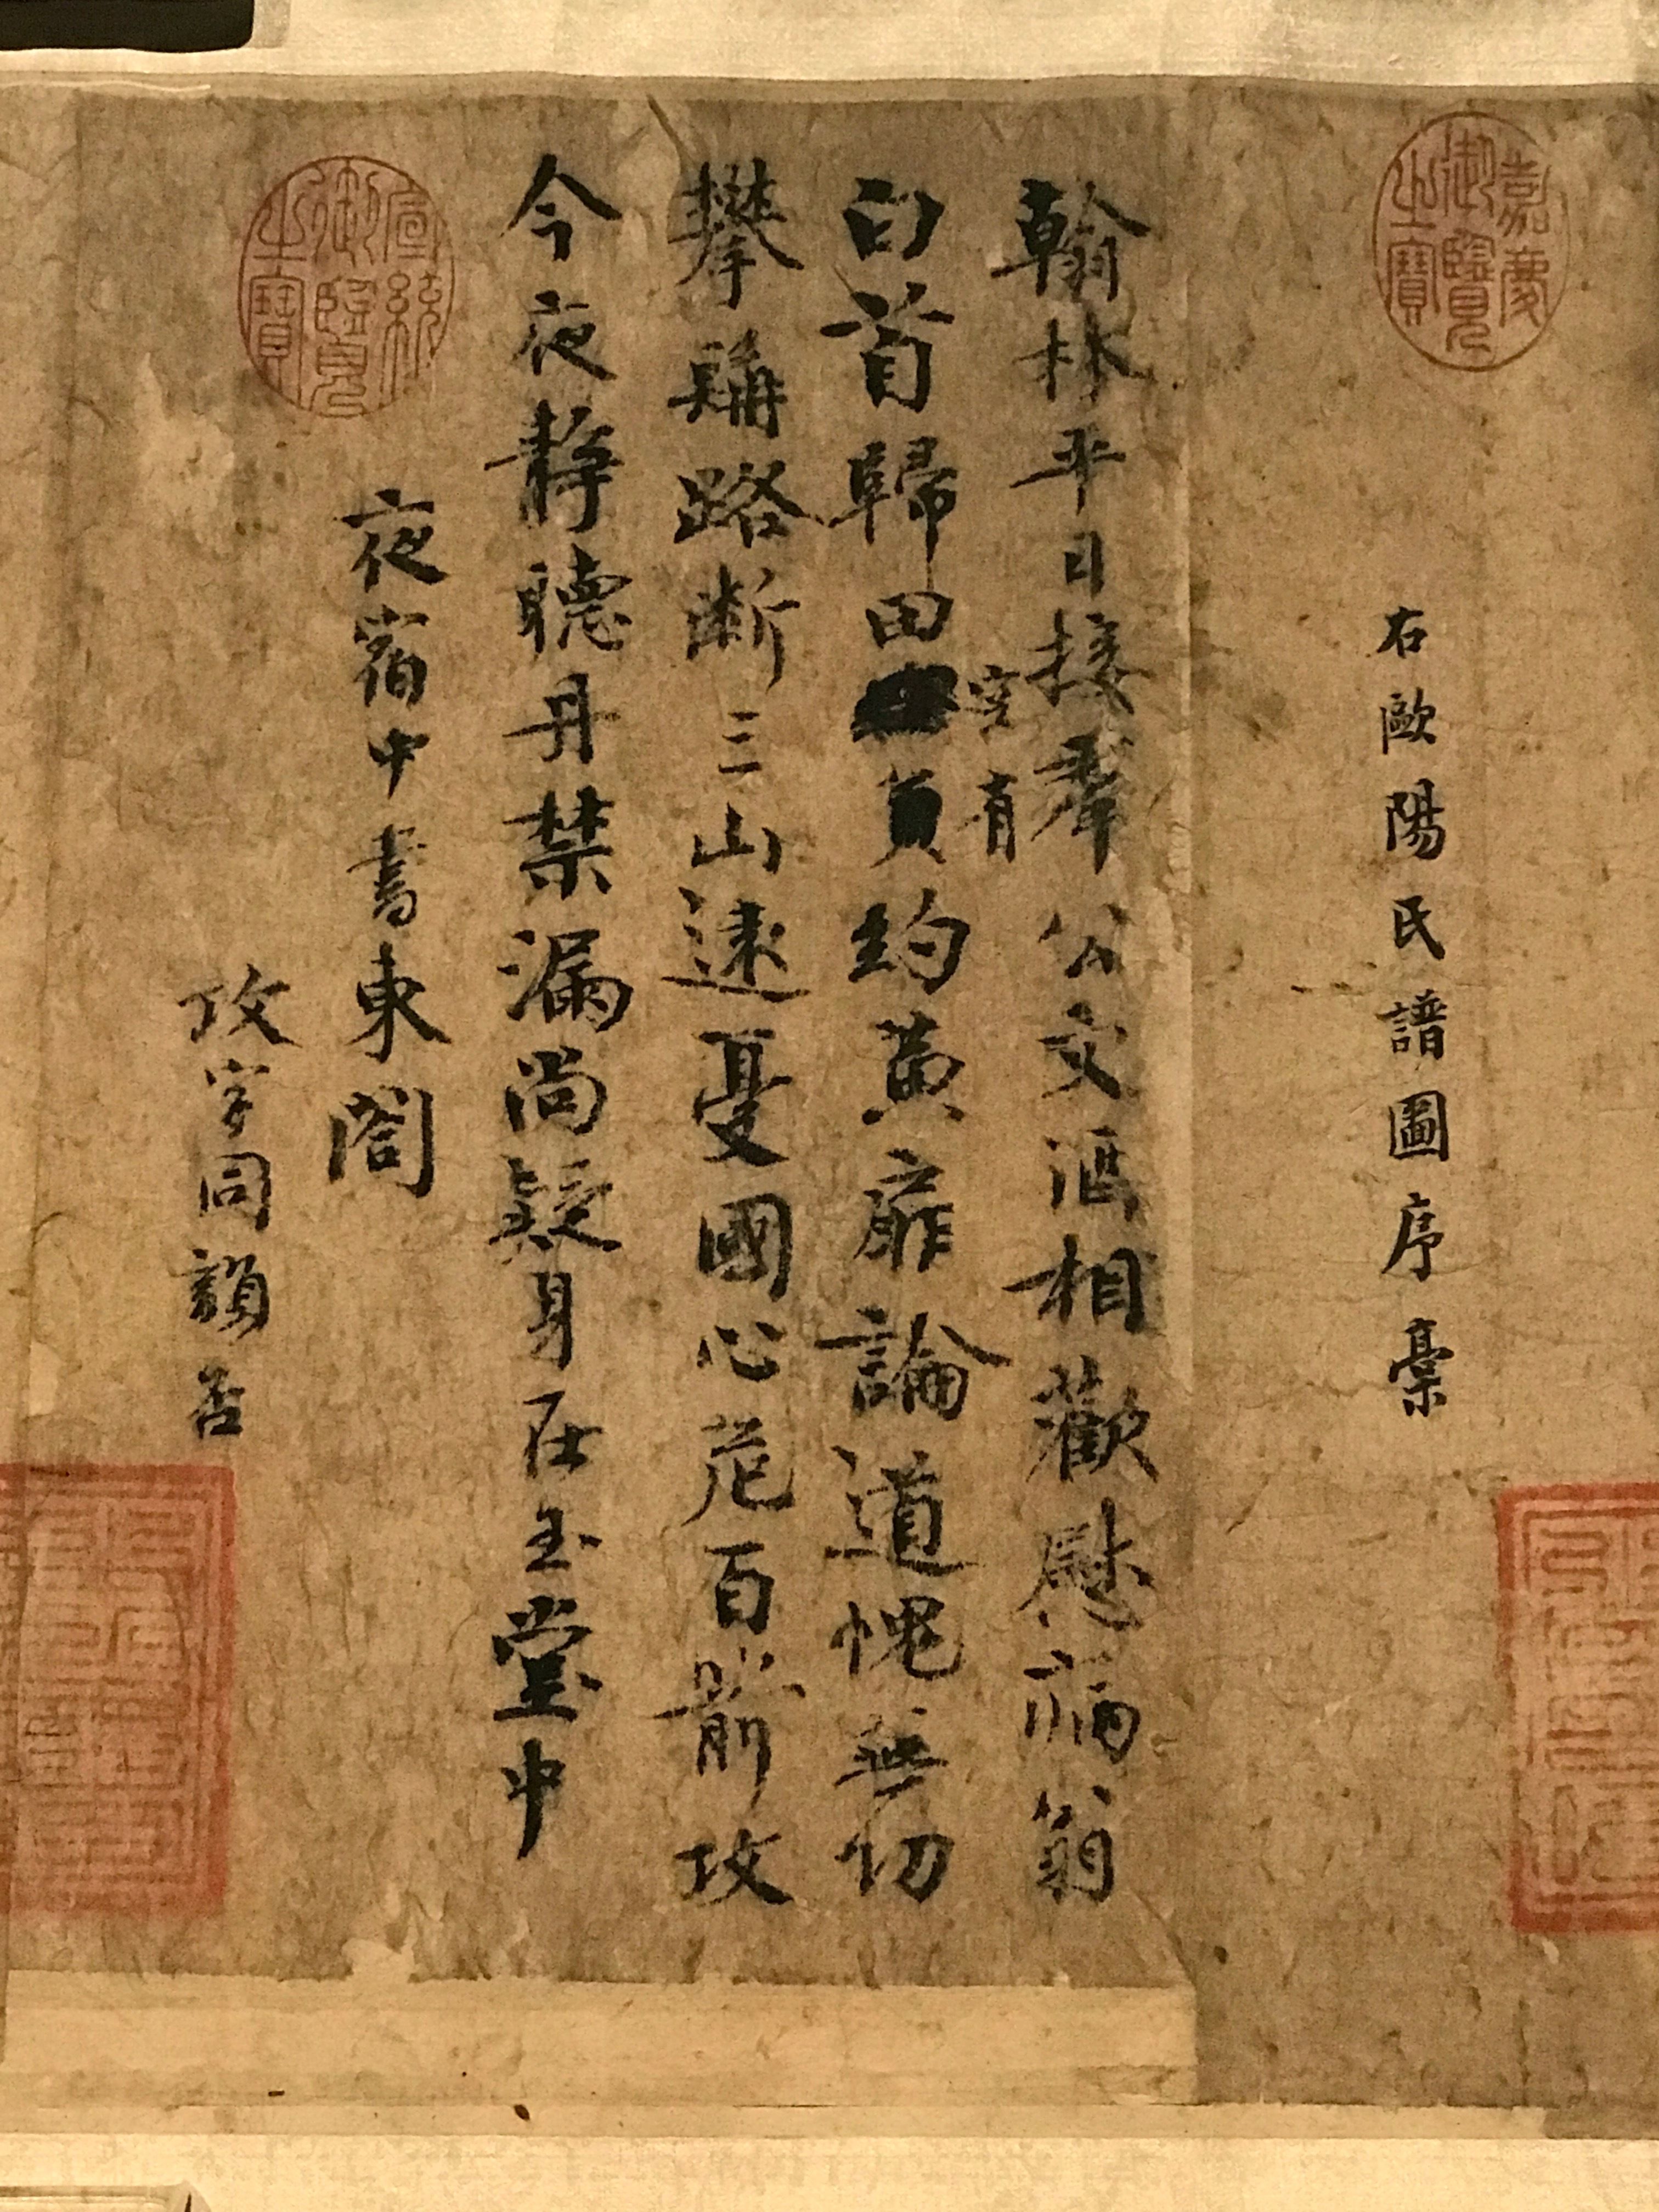 嘉慶御覽之寶
右歐陽氏譜圖序稾
翰林平日接羣公文酒相歡慰病翁
白首歸田空有約黃扉論道愧無功
攀髯路斷三山遠憂國心危百箭攻
今夜靜聽丹禁漏尚疑身在玉堂中
夜宿中書東閣
攻字同韻否
宣統御覽之寶